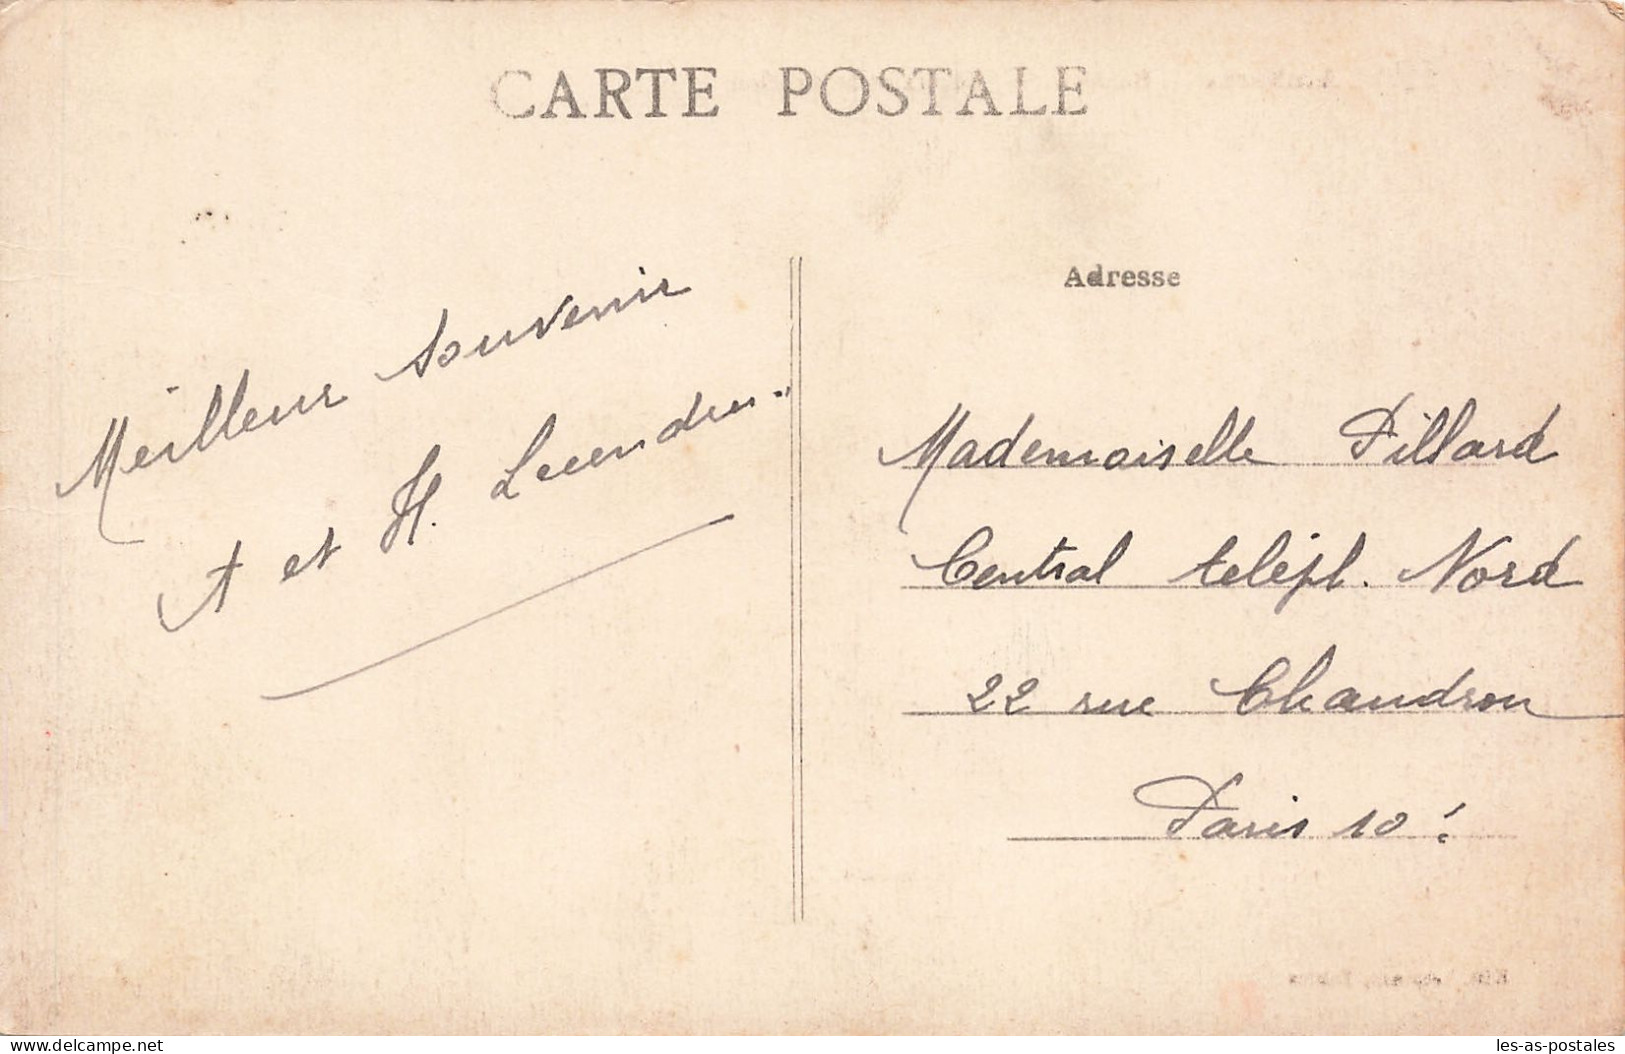 CARTE POSTALE
Meilleur souvenir
A et H.
Adresse
Mademoiselle Pillard
Central teléph. Nord
22 rue Chaudron
Paris 10e
delcampe.net
les-as-postales